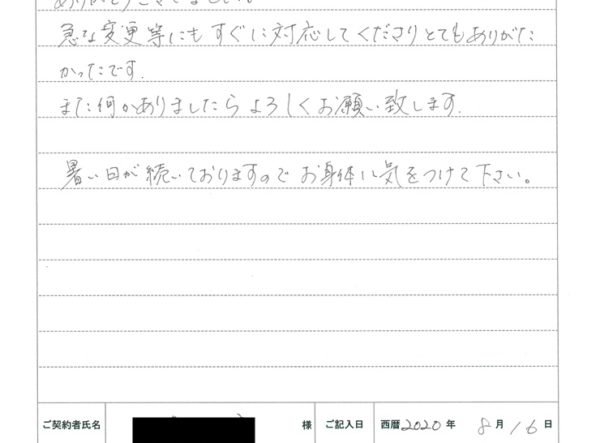 ありがとうございました。
急な変更等にもすぐに対応してくださりとてもありがた
かったです.
また何かありましたらよろしくお願い致します.
暑い日が続いておりますのでお身体に気をつけて下さい。
ご契約者氏名 様 ご記入日 西暦2020年 8月16日